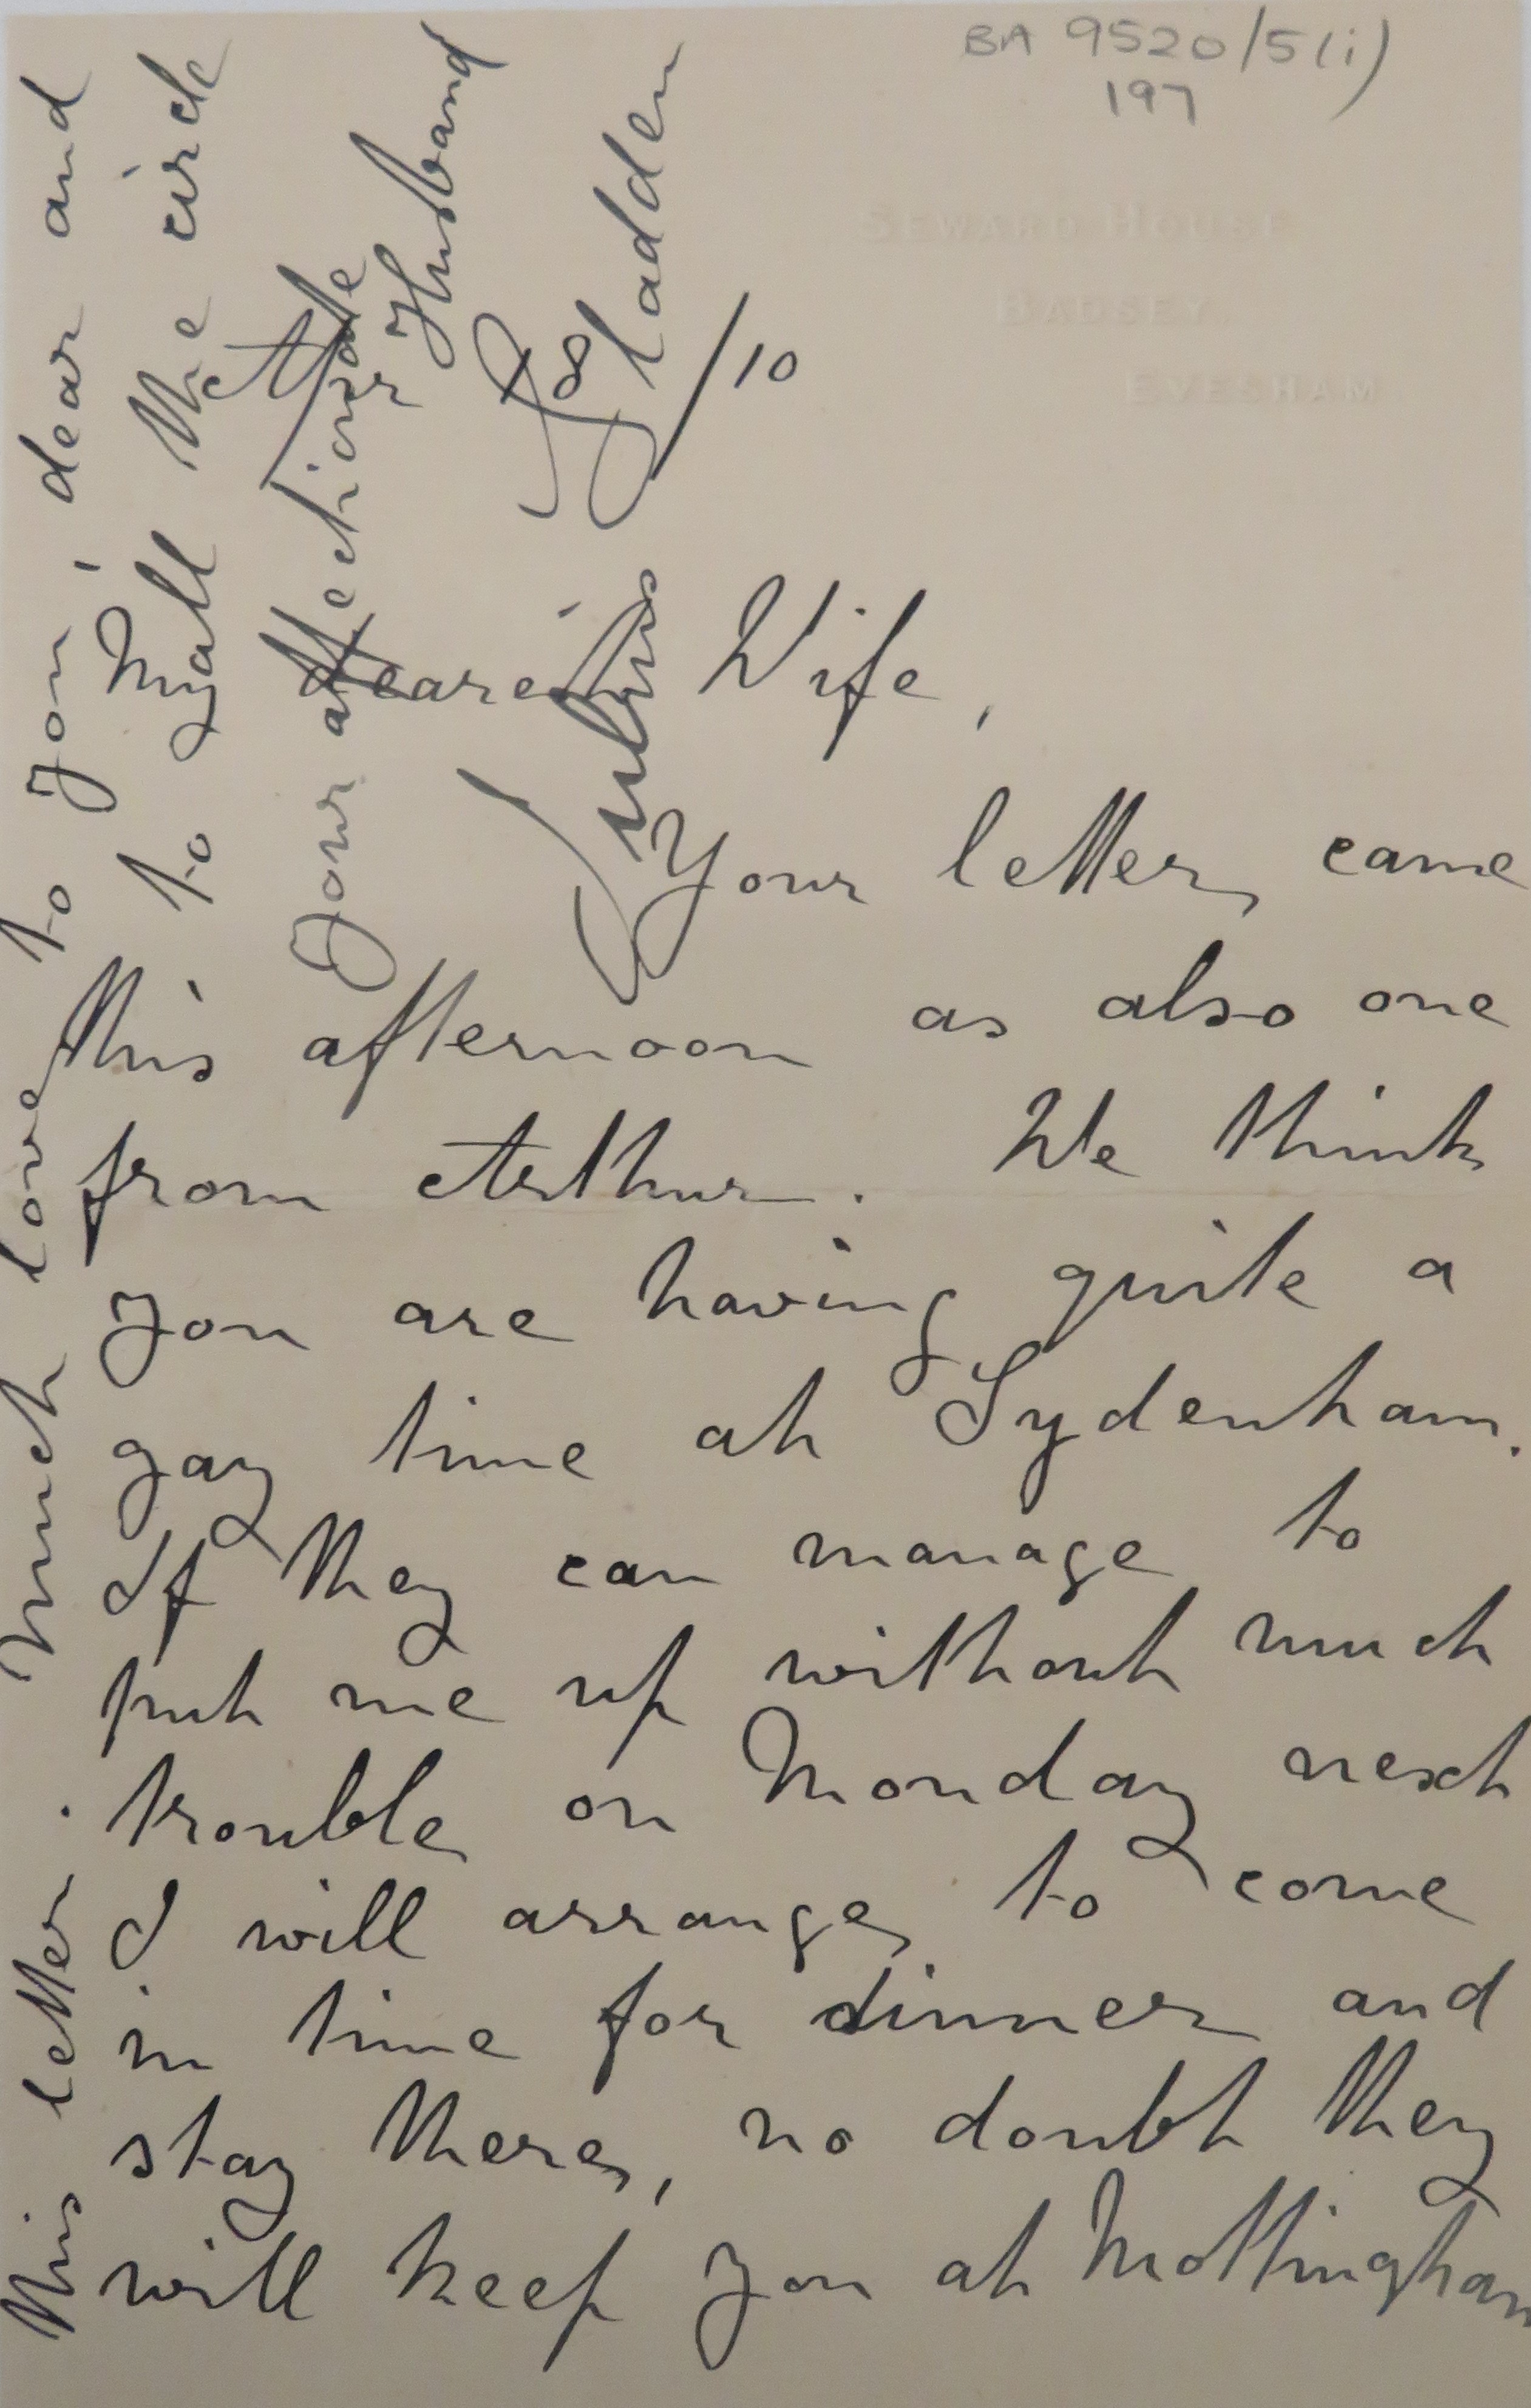 BA 9520/5(i)
197
SEWARD HOUSE
BADSEY.
EVESHAM.
Apr 8/10
My dearest Wife,
Your letter came
this afternoon as also one
from Arthur. We think
you are having quite a
gay time at Sydenham.
If they can manage to
put me up without much
trouble on Monday next
I will arrange to come
in time for dinner and
stay there, no doubt they
will keep you at Mottingham
this letter. Much love to you, dear and
to all the circle
Your affectionate
Husband
Julius Sladden